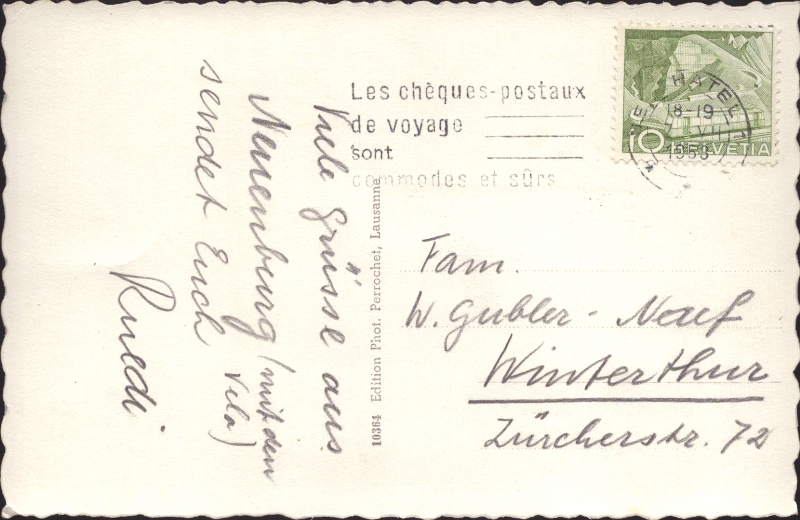 Viele Grüsse aus
Neuenburg (mit dem
Velo)
sendet Euch
Ruedi
Les chèques-postaux
de voyage
sont
commodes et sûrs
18-19
VII
1953
10 HELVETIA
10364 Edition Phot. Perrochet, Lausanne
Fam.
W. Gubler-Naef
Winterthur
Zürcherstr. 72